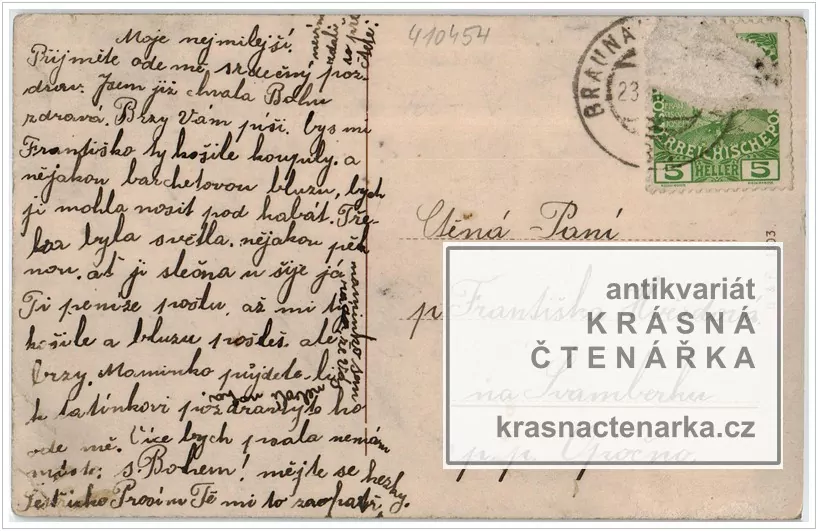 Moje nejmilejší.
Přijměte ode mě srdečný poz-
drav. Jsem již chvala Bohu
zdravá. Brzy Vám píši. bys mi
Františko ty košile koupily. a
nějakou barchetovou bluzu, bych
ji mohla nosit pod habát. Tře-
ba byla světla. nějakou pěk
nou. ať ji slečna u šije já
Ti peníze pošlu, až mi ty
košile a bluzu pošleš. ale
brzy. Maminko půjdete-li
k tatínkovi pozdravujte ho
ode mě. Více bych psala nemám
místo: s Bohem! mějte se hezky.
Sestřičko Prosím Tě mi to zaopatř.
maminko sem
ráda že Vás
410454
BRAUNA
23
ERREICHISCHE PO
5 HELLER 5
Ctěná Paní
p. Františka
na Švamberku
p. p. Opočno.
antikvariát
KRÁSNÁ
ČTENÁŘKA
krasnactenarka.cz